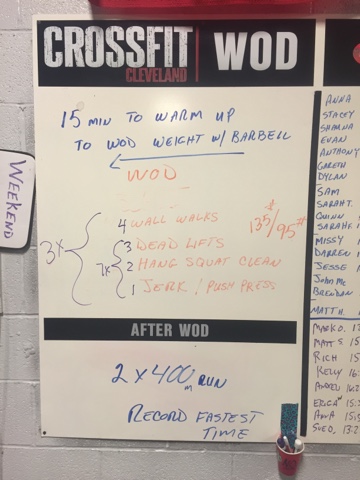 CROSSFIT
CLEVELAND
WOD
15 MIN TO WARM UP
TO WOD WEIGHT W/ BARBELL
WOD
4 WALL WALKS
135#/95#
3x
7x
3 DEAD LIFTS
2 HANG SQUAT CLEAN
1 JERK / PUSH PRESS
AFTER WOD
2 x 400m RUN
RECORD FASTEST
TIME
WEEKEND
ANNA
STACEY
SHAWNA
EVAN
ANTHONY
GARETH
DYLAN
SAM
SARAH T.
QUINN
SARAH F.
MISSY
DARREN
JESSE
JOHN MC
BRENDAN
MATT H.
MARK D.
MATT S. 15
RICH 15
KELLY 16: